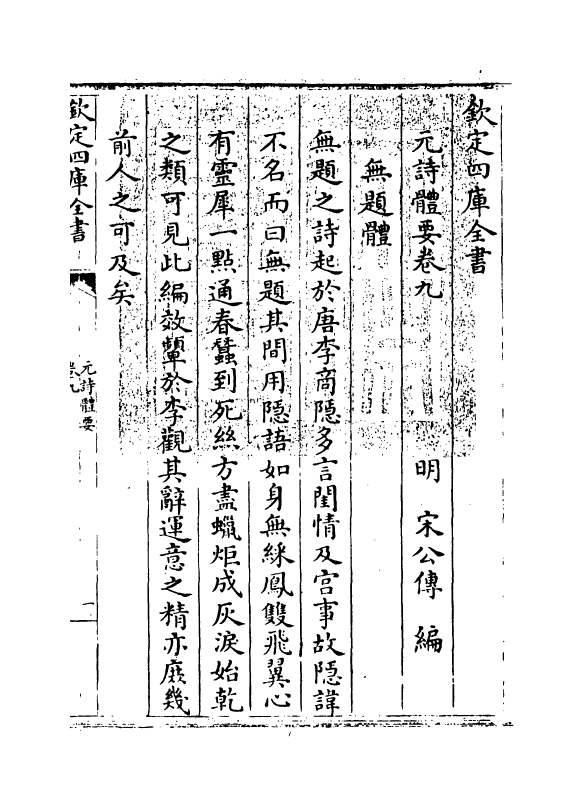 欽定四庫全書
元詩體要卷九
明 宋公傳 編
無題體
無題之詩起於唐李商隱多言閨情及宫事故隱諱
不名而曰無題其間用隱語如身無綵鳳雙飛翼心
有靈犀一點通春蠶到死絲方盡蠟炬成灰淚始乾
之類可見此編效顰於李觀其辭運意之精亦庶幾
前人之可及矣
欽定四庫全書
元詩體要
卷九
一